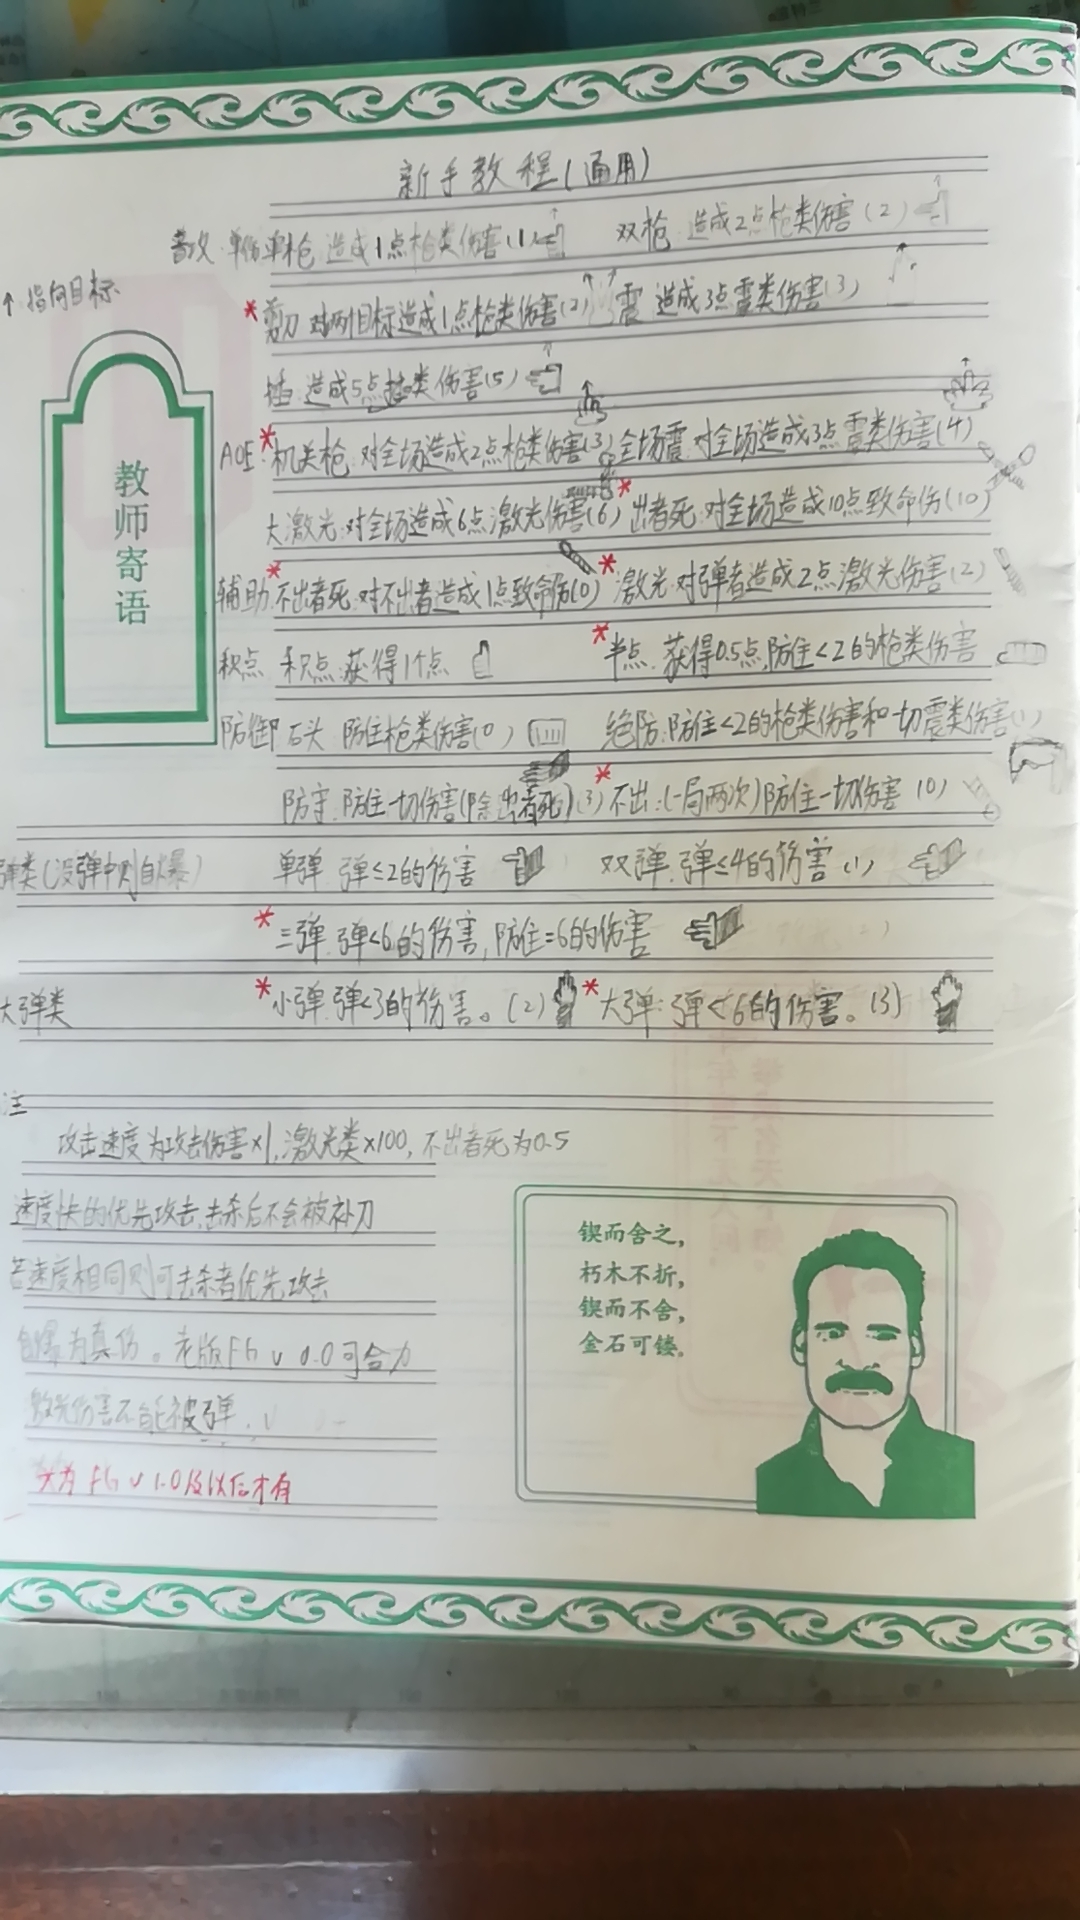 新手教程(通用)
普攻:单伤单枪:造成1点枪类伤害(1) 双枪:造成2点枪类伤害(2)
↑指向目标
*剪刀 对两目标造成1点枪类伤害(2) 震 造成3点震类伤害(3)
插:造成5点插类伤害(5)
AOE:*机关枪:对全场造成2点枪类伤害(3) 全场震:对全场造成3点震类伤害(4)
大激光:对全场造成6点激光伤害(6) *出者死:对全场造成10点致命伤(10)
辅助*不出者死:对不出者造成1点致命伤(0) *激光:对弹者造成2点激光伤害(2)
积点 积点:获得1个点 *半点:获得0.5点,防住<2的枪类伤害
防御 石头 防住枪类伤害(0) 绝防:防住<2的枪类伤害和一切震类伤害(1)
防守:防住一切伤害(除出者死)(3) *不出:(一局两次)防住一切伤害(0)
弹类(没弹中则自爆) 单弹:弹≤2的伤害 双弹:弹≤4的伤害(1)
*三弹:弹<6的伤害,防住=6的伤害
大弹类 *小弹:弹<3的伤害。(2) *大弹:弹<6的伤害。(3)
注
攻击速度为攻击伤害×1,激光类×100,不出者死为0.5
速度快的优先攻击,击杀后不会被补刀
若速度相同则可击杀者优先攻击
自爆为真伤。老版FG v 0.0可合力
激光伤害不能被弹.
*为 FG v 1.0及以后才有
教师寄语
锲而舍之,
朽木不折,
锲而不舍,
金石可镂。